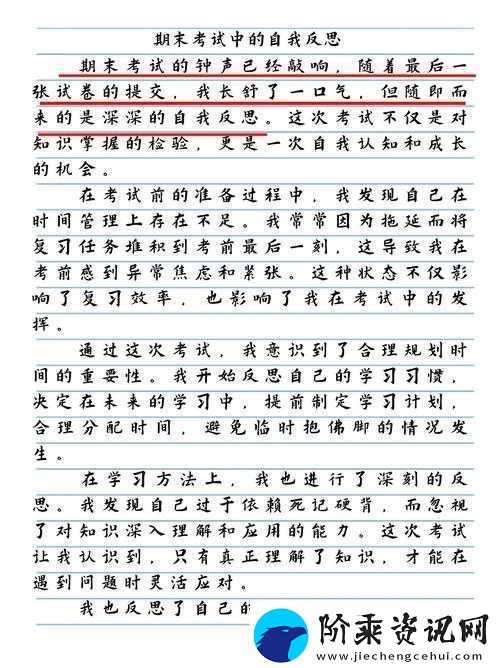 期末考试中的自我反思
期末考试的钟声已经敲响，随着最后一
张试卷的提交，我长舒了一口气，但随即而
来的是深深的自我反思。这次考试不仅是对
知识掌握的检验，更是一次自我认知和成长
的机会。
在考试前的准备过程中，我发现自己在
时间管理上存在不足。我常常因为拖延而将
复习任务堆积到考前最后一刻，这导致我在
考前感到异常焦虑和紧张。这种状态不仅影
响了复习效率，也影响了我在考试中的发
挥。
通过这次考试，我意识到了合理规划时
间的重要性。我开始反思自己的学习习惯，
决定在未来的学习中，提前制定学习计划，
合理分配时间，避免临时抱佛脚的情况发
生。
在学习方法上，我也进行了深刻的反
思。我发现自己过于依赖死记硬背，而忽视
了对知识深入理解和应用的能力。这次考试
让我认识到，只有真正理解了知识，才能在
遇到问题时灵活应对。
我也反思了自己的
阶乘资讯网
www.jiechengcehui.com